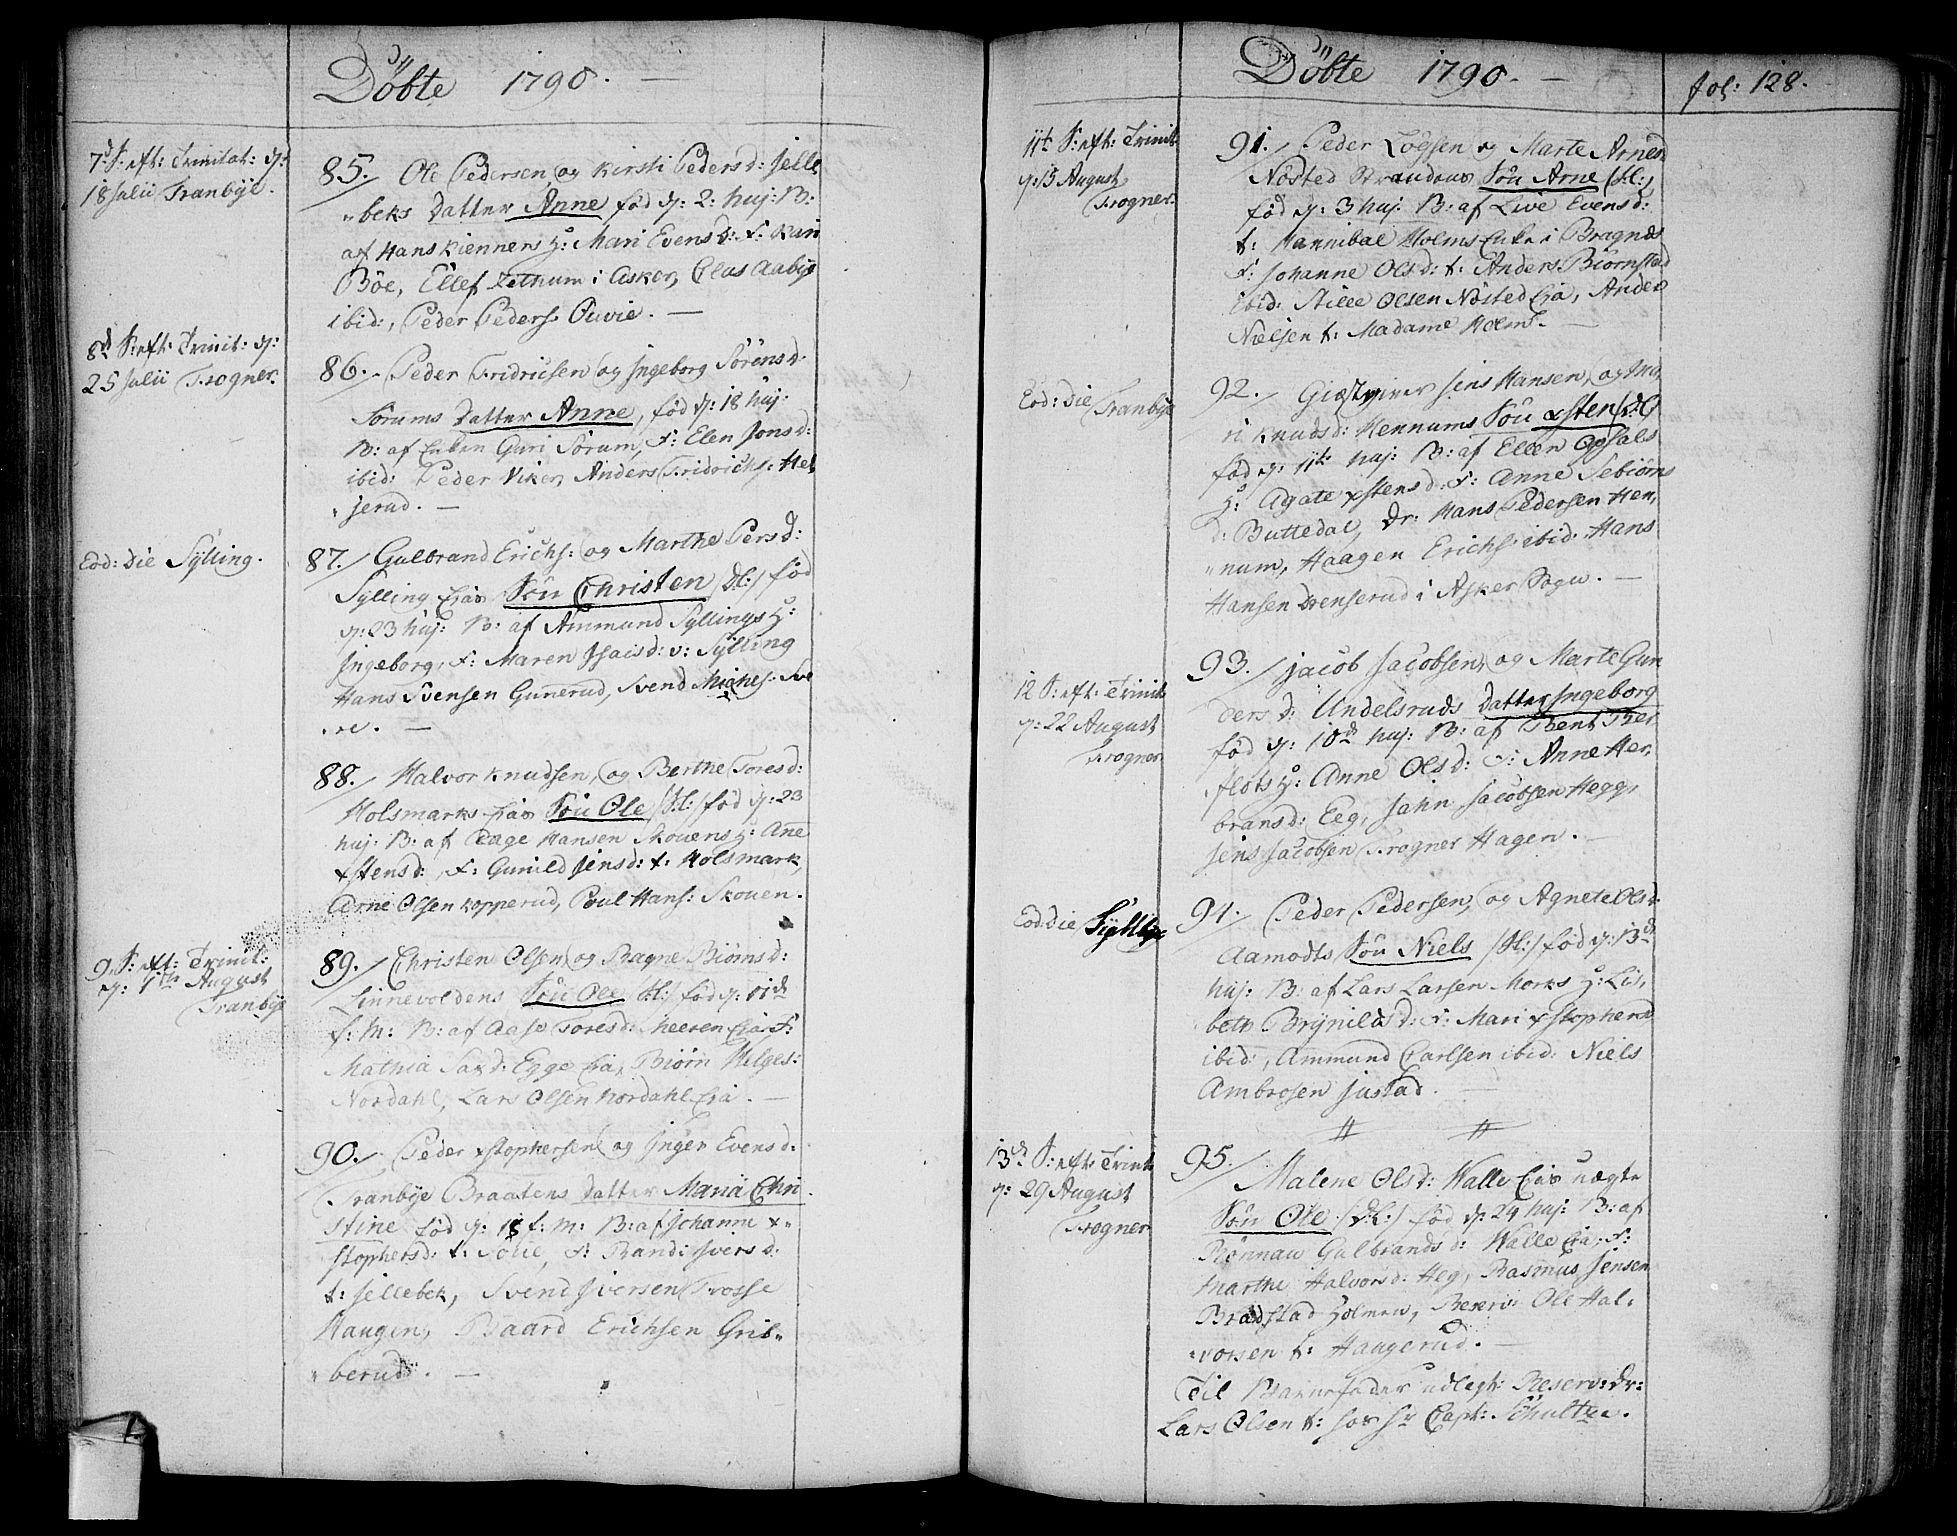 Döbte 1790.
7d S: eft: Trinitat: d:
18 Julii Tranbÿe.
85. Ole Pedersen og Kirsti Pedersd: Jelle
beks Datter Anne fød d: 2: huj: B:
af Hans Kienners H: Mari Evensd: F: Kari
Böe, Ellef Lethum i Asker, Clas Aabÿe
ibid:, Peder Peders: Ouvie.
8d S: eft: Trinit: d:
25 Julii Frogner.
86. Peder Fridricsen og Ingeborg Sörensd:
Sorums Datter Anne, fød d: 18 huj:
B: af Enken Guri Sørum, F: Elen Jonsd:
ibid: Peder Viker, Anders Fridrichs: Hel
jerud.
Eod: Die Sylling.
87. Gulbrand Erichs: og Marthe Persd:
Sÿlling Eiäs Sön Christen /Dl:/ fød
d: 23 huj: B: af Ammund Sÿllings H:
Ingeborg, F: Maren Isaisd: v: Sÿlling
Hans Svensen Gunerud, Svend Michels: Sve
re.
88. Halvor Knudsen, og Berthe Toresd:
Holsmarks Eiäs Sön Ole /Sl:/ fød d: 23
huj: B: af Aage Hansen Skouens H: Ane
xstensd: F: Gunild Jensd: t: Holsmark,
Arne Olsen Kopperud, Poul Hans: Skouen.
9. S: eft: Trinit:
d: 1ste August
Tranbÿe
89. Christen Olsen og Ragne Biörnsd:
Linnevoldens Sön Ole /Sl:/ fød d: 11d
f: M: B: af Aase Toresd: Meeren Eiä: F:
Mathia Saxd: Egge Eiä, Biørn Helges:
Nordahl, Lars Olsen Nordahl Eiä.
90. Peder xstophersen og Inger Evensd:
Tranbÿe Braatens Datter Maria Chri
stine fød d: 18 f: M: B: af Johanne x
stophersd: t: Solie, F: Randi Iversd:
t: Jellebek, Svend Iversen Frosse
Haugen, Baard Erichsen Grib
berud.
Döbte 1790.
fol: 128.
11te S: eft: Trinit
d: 15 August
Frogner.
91. Peder Logsen og Marte Arnesd
Nösted Strandens Sön Arne /Sl:/
fød d: 3 huj: B: af Live Evensd:
t: Hannibal Holms Enke i Bragnæs
F: Johanne Olsd: t: Anders Biørnstad
ibid: Stille Olsen Nösted Eiä, Anders
Nielsen t: Madame Holms.
Eod: Die Tranbÿe
92. Giæstgiver Jens Hansen, og Ma,
ri Knudsd: Hennums Sön xsten /Dl:/
fød d: 11te huj: B: af Ellen Opsals
H: Agate xstensd: F: Anne Sebiörns
d: Buttedal, Dr: Hans Pedersen Hen,
num, Haagen Erichs: ibid: Hans
Hansen Drenserud i Asker Sogn.
12 S: eft: Trinit
d: 22 August
Frogner
93. Jacob Jacobsen, og Marte Gun
dersd: Undelsruds Datter Ingeborg
fød d: 10d huj: B: af Bent Ber
flots H: Anne Olsd: F: Anne Her,
bransd: Eeg, Jahn Jacobsen Hegg,
Jens Jacobsen Frogner Hagen.
Eod: Die Sÿlling
94. Peder Pedersen, og Agnete Olsd:
Aamodts Sön Niels /Sl:/ fød d: 13d
huj: B: af Lars Larsen Morks H: Lis,
beth Brÿnildsd: F: Mari xstophersd
ibid:, Ammund Carlsen ibid: Niels
Ambrosen Justad.
13d S: eft: Trinit
d: 29 August
Frogner
95. Malene Olsd: Walle Eiäs uægte
Sön Ole /Dl:/ fød d: 24 huj: B: af
Rönnau Gulbrandsd: Walle Eiä: F:
Marthe Halvorsd: Heg, Rasmus Jensen
Bradstad Holmen, Reserv: Ole Hal,
vorsen t: Haugerud.
Til Barnefader udlegt: Reserv: Dr:
Lars Olsen t: hos Hr Capt: Schultze.